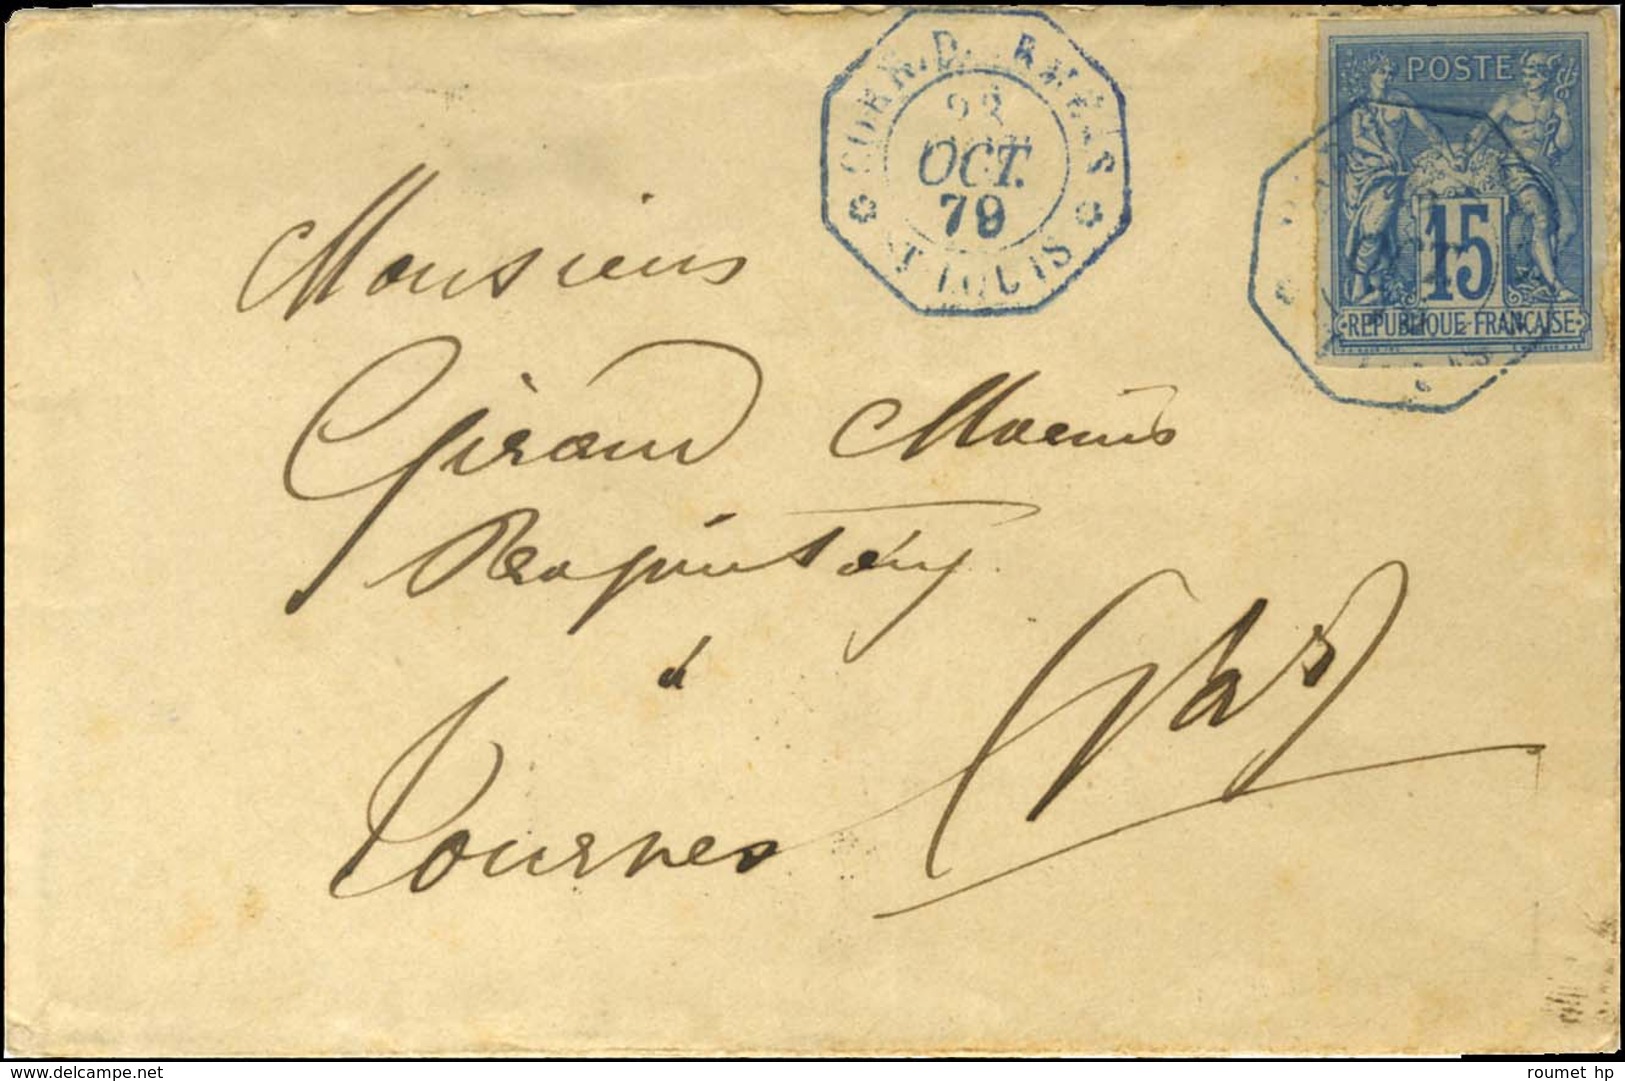 CORR. D. ARMÉES
22
OCT.
79
ST LOUIS
POSTE
15
RÉPUBLIQUE FRANÇAISE
Monsieur
Giraud Marius
à
Tournes
(Var)
www.delcampe.net
roumet hp